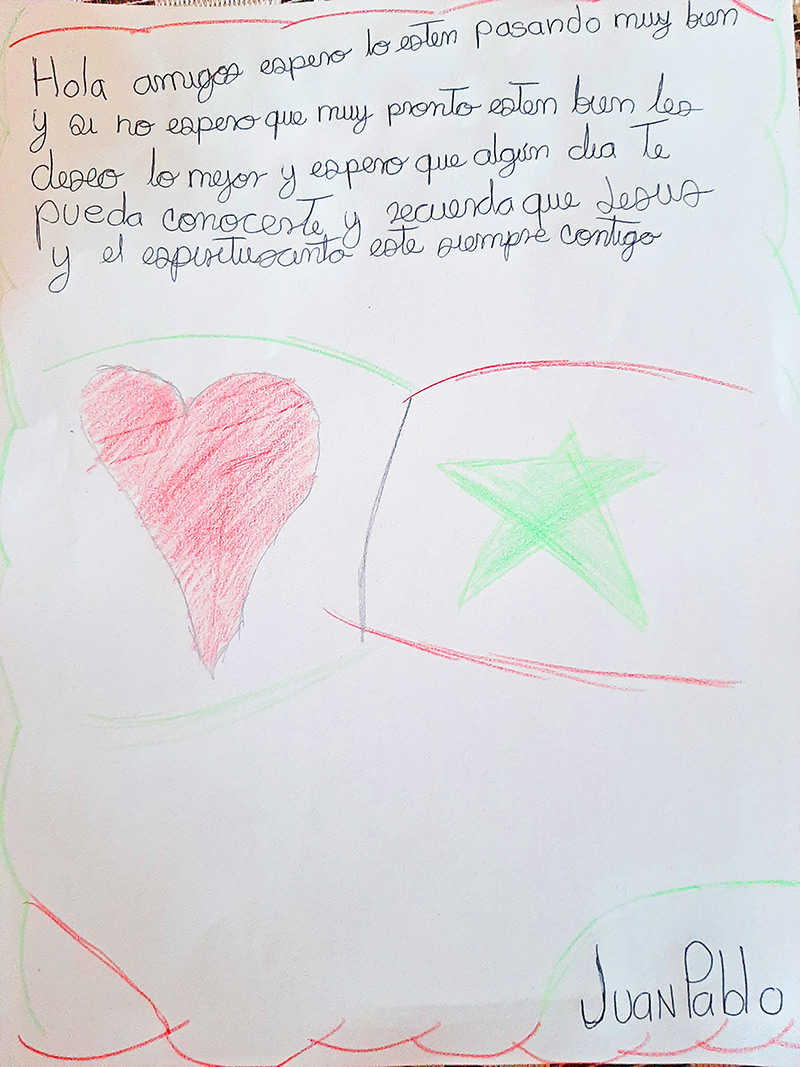 Hola amigos espero lo esten pasando muy bien
y si no espero que muy pronto esten bien les
deseo lo mejor y espero que algún dia Te
pueda conocerte y recuerda que Jesus
y el espiritusanto este siempre contigo
Juan Pablo